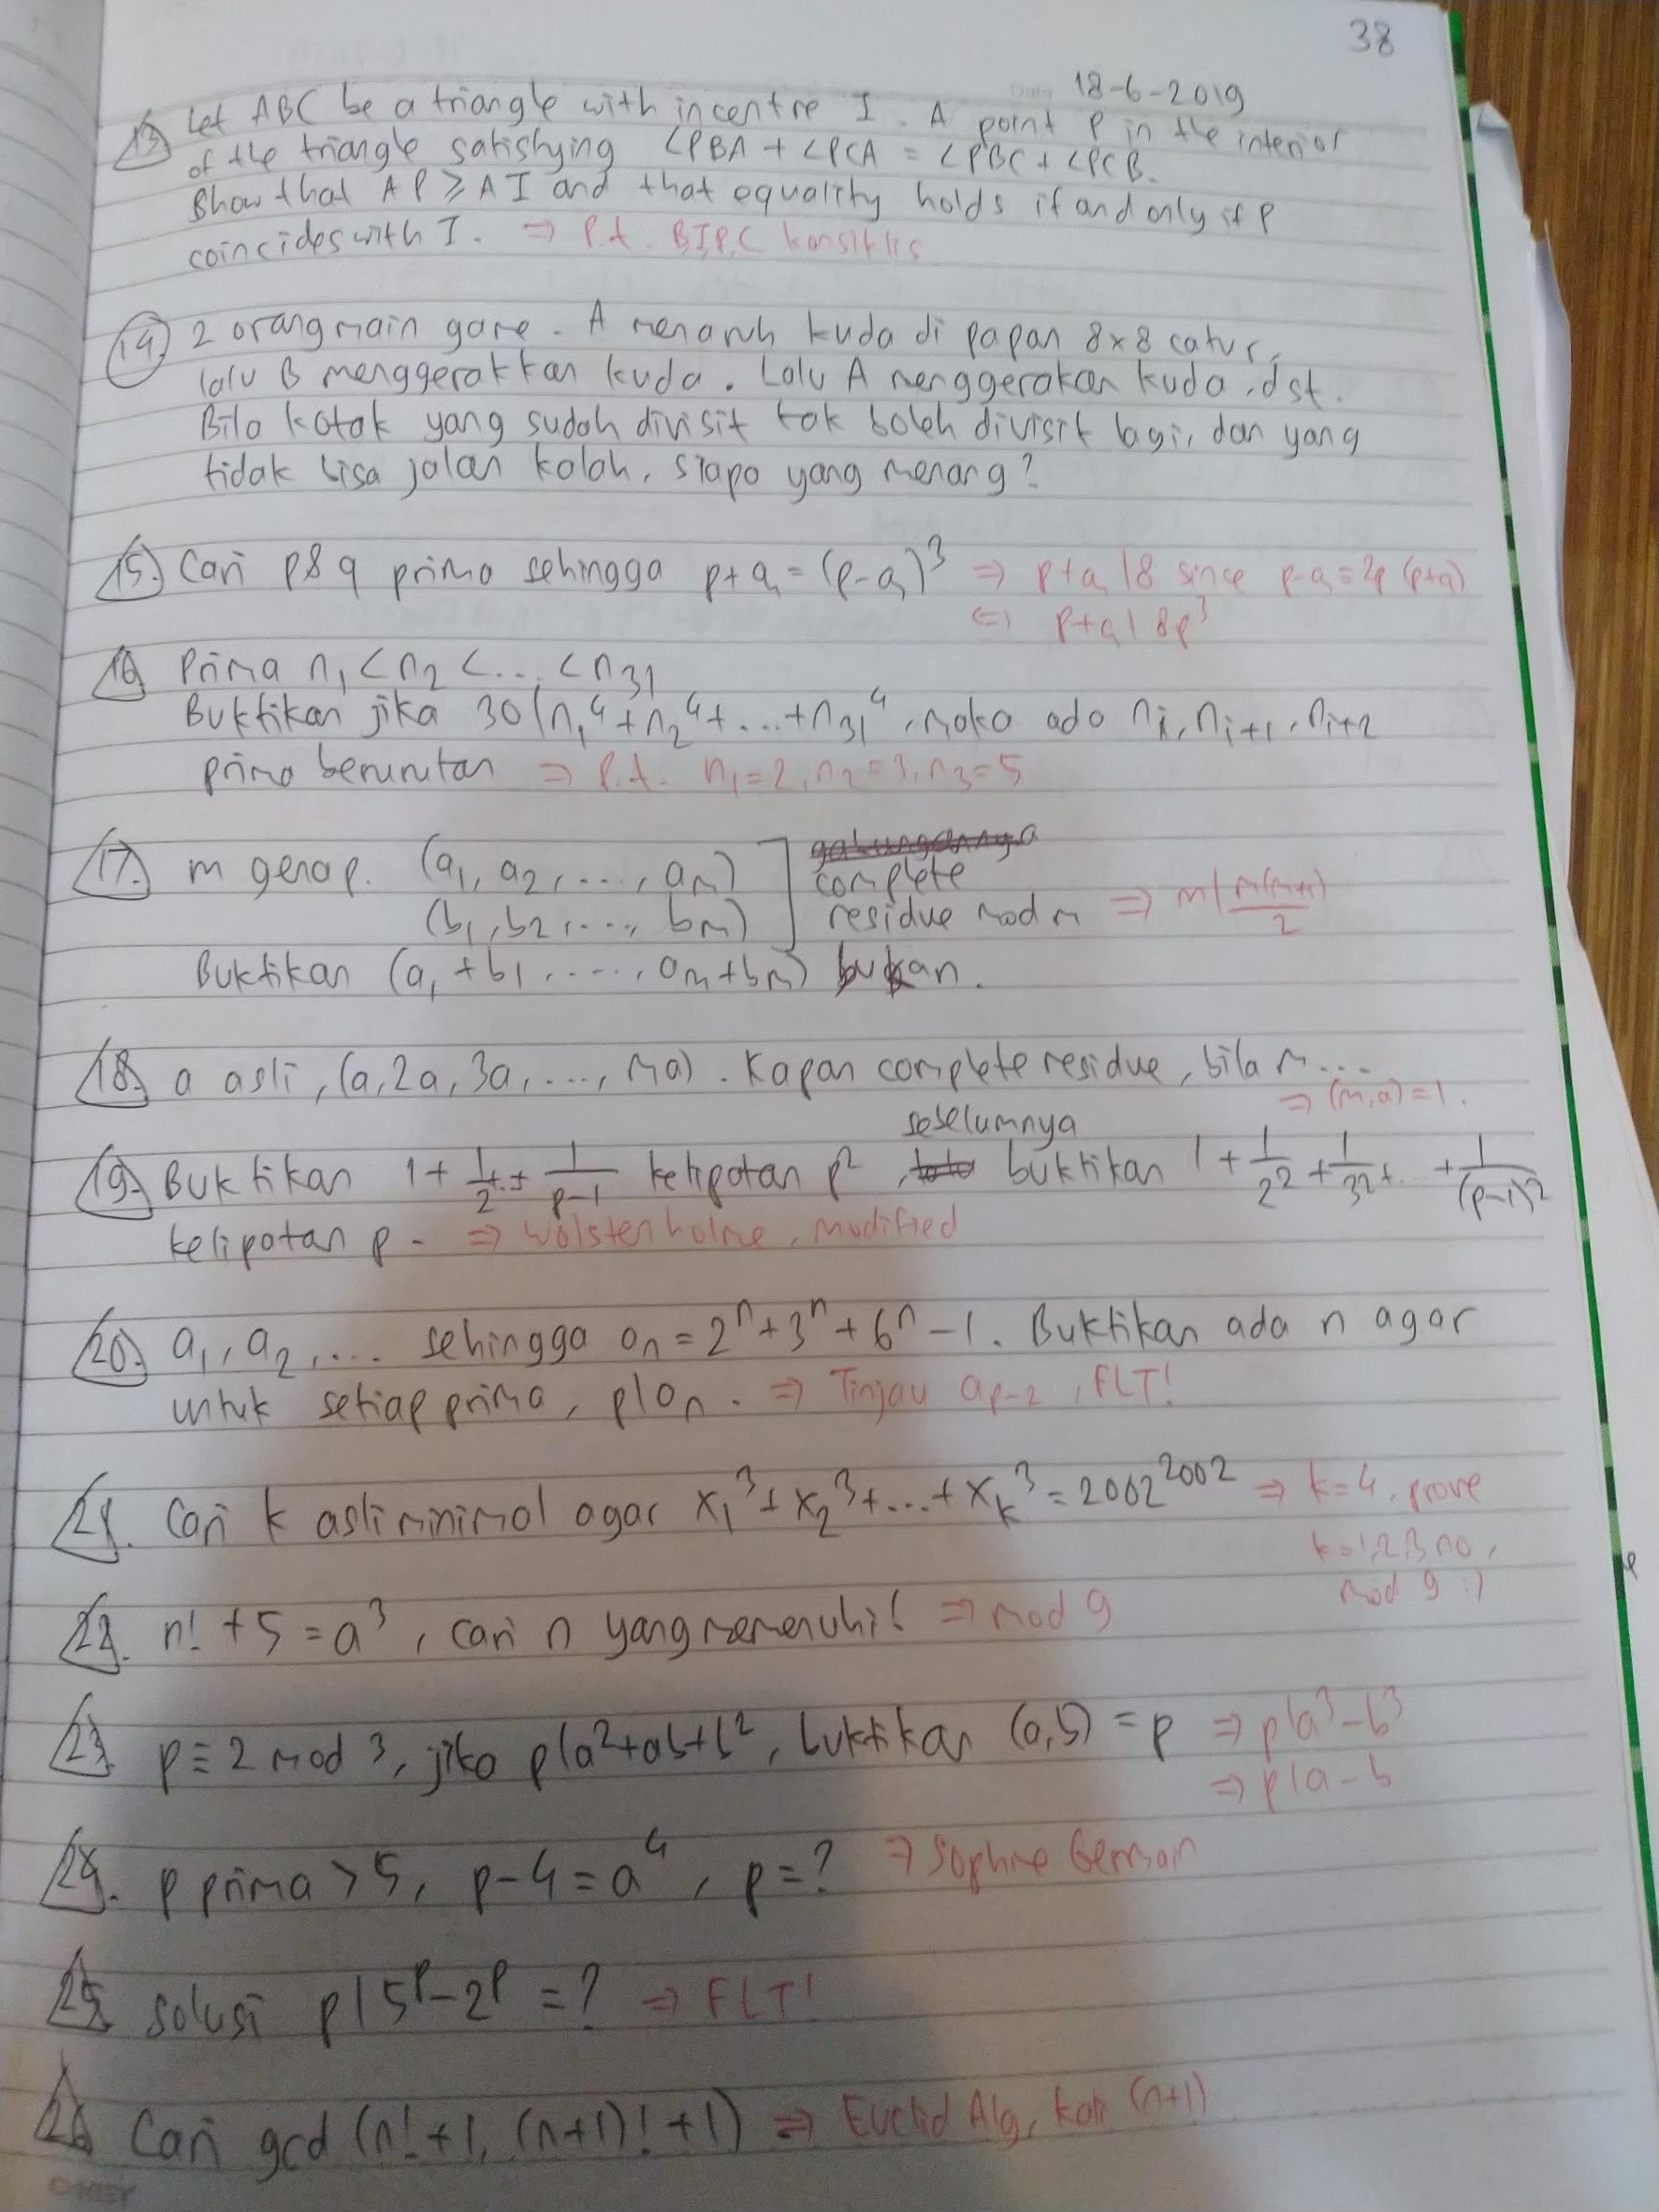 38
18-6-2019
13. Let ABC be a triangle with incentre I. A point P in the interior
of the triangle satisfying ∠PBA + ∠PCA = ∠PBC + ∠PCB.
Show that AP ≥ AI and that equality holds if and only if P
coincides with I. ⇒ P.t. BIPC konsiklis
14. 2 orang main game. A menaruh kuda di papan 8x8 catur,
lalu B menggerakkan kuda. Lalu A menggerakan kuda, dst.
Bila kotak yang sudah divisit tak boleh divisit lagi, dan yang
tidak bisa jalan kalah, siapa yang menang?
15. Cari p & q prima sehingga p+q = (p-q)³ ⇒ p+q | 8 since p-q ≡ 2p (p+q)
⇔ p+q | 8p³
16. Prima n₁ < n₂ < ... < n₃₁
Buktikan jika 30 | n₁⁴ + n₂⁴ + ... + n₃₁⁴, maka ada nᵢ, nᵢ₊₁, nᵢ₊₂
prima berurutan ⇒ P.t. n₁=2, n₂=3, n₃=5
17. m genap. (a₁, a₂, ..., aₘ) ] complete
(b₁, b₂, ..., bₘ) ] residue mod m ⇒ m | m(m+1)/2
Buktikan (a₁+b₁, ..., aₘ+bₘ) bukan.
18. a asli, (a, 2a, 3a, ..., ma). Kapan complete residue, bila m...
⇒ (m,a)=1.
sebelumnya
19. Buktikan 1 + 1/2 + .. + 1/(p-1) kelipatan p², buktikan 1 + 1/2² + 1/3² + ... + 1/(p-1)²
kelipatan p. ⇒ Wolstenholme, modified
20. a₁, a₂, .... sehingga aₙ = 2ⁿ + 3ⁿ + 6ⁿ - 1. Buktikan ada n agar
untuk setiap prima, p|aₙ. ⇒ Tinjau aₚ₋₂, FLT!
21. Cari k asli minimal agar x₁³ + x₂³ + ... + xₖ³ = 2002²⁰⁰² ⇒ k=4, prove
k=1,2,3 no,
mod 9 :)
22. n! + 5 = a³, cari n yang memenuhi! ⇒ mod 9
23. p ≡ 2 mod 3, jika p|a²+ab+b², buktikan (a,b) = p ⇒ p|a³-b³
⇒ p|a-b
24. p prima > 5, p-4 = a⁴, p = ? ⇒ Sophie Germain
25. Solusi p | 5ᵖ - 2ᵖ = ? ⇒ FLT!
26. Cari gcd (n!+1, (n+1)!+1) ⇒ Euclid Alg, kali (n+1)